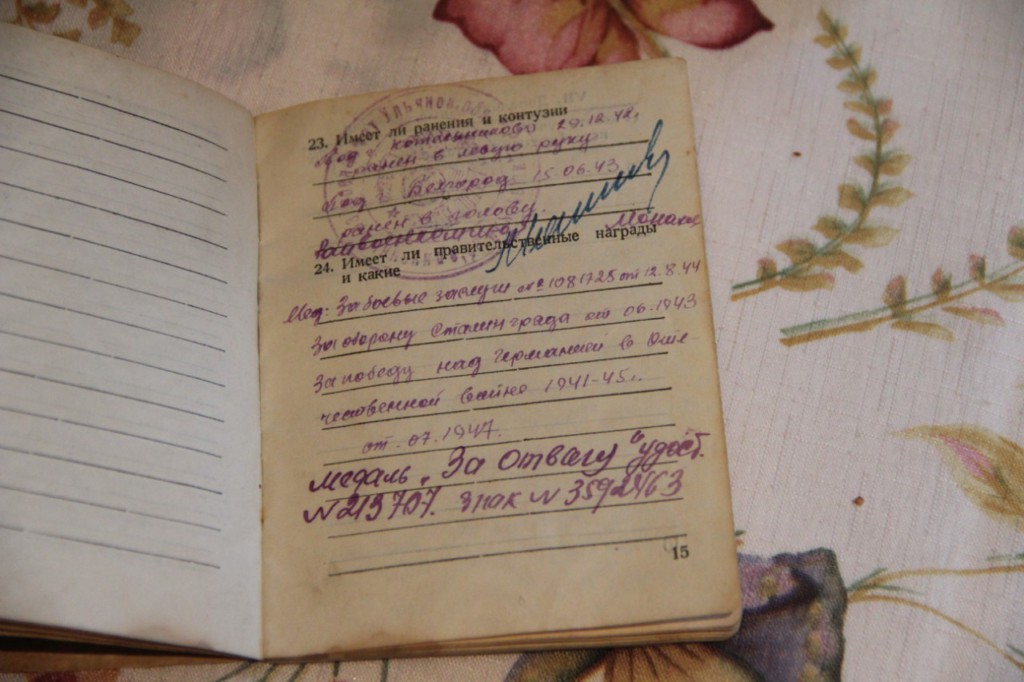 УЛЬЯНОВ
23. Имеет ли ранения и контузии
Под г. Котельниково 29.12.42г.
ранен в левую руку
Под г. Белгород 15.06.43
ранен в голову.
24. Имеет ли правительственные награды
и какие
Мед: За боевые заслуги № 1081725 от 12.8.44
За оборону Сталинграда от 06.1943
За победу над Германией в Оте-
чественной войне 1941-45г.
от .07.1947.
медаль „За отвагу" удост.
N 213707. знак N 3592463
15